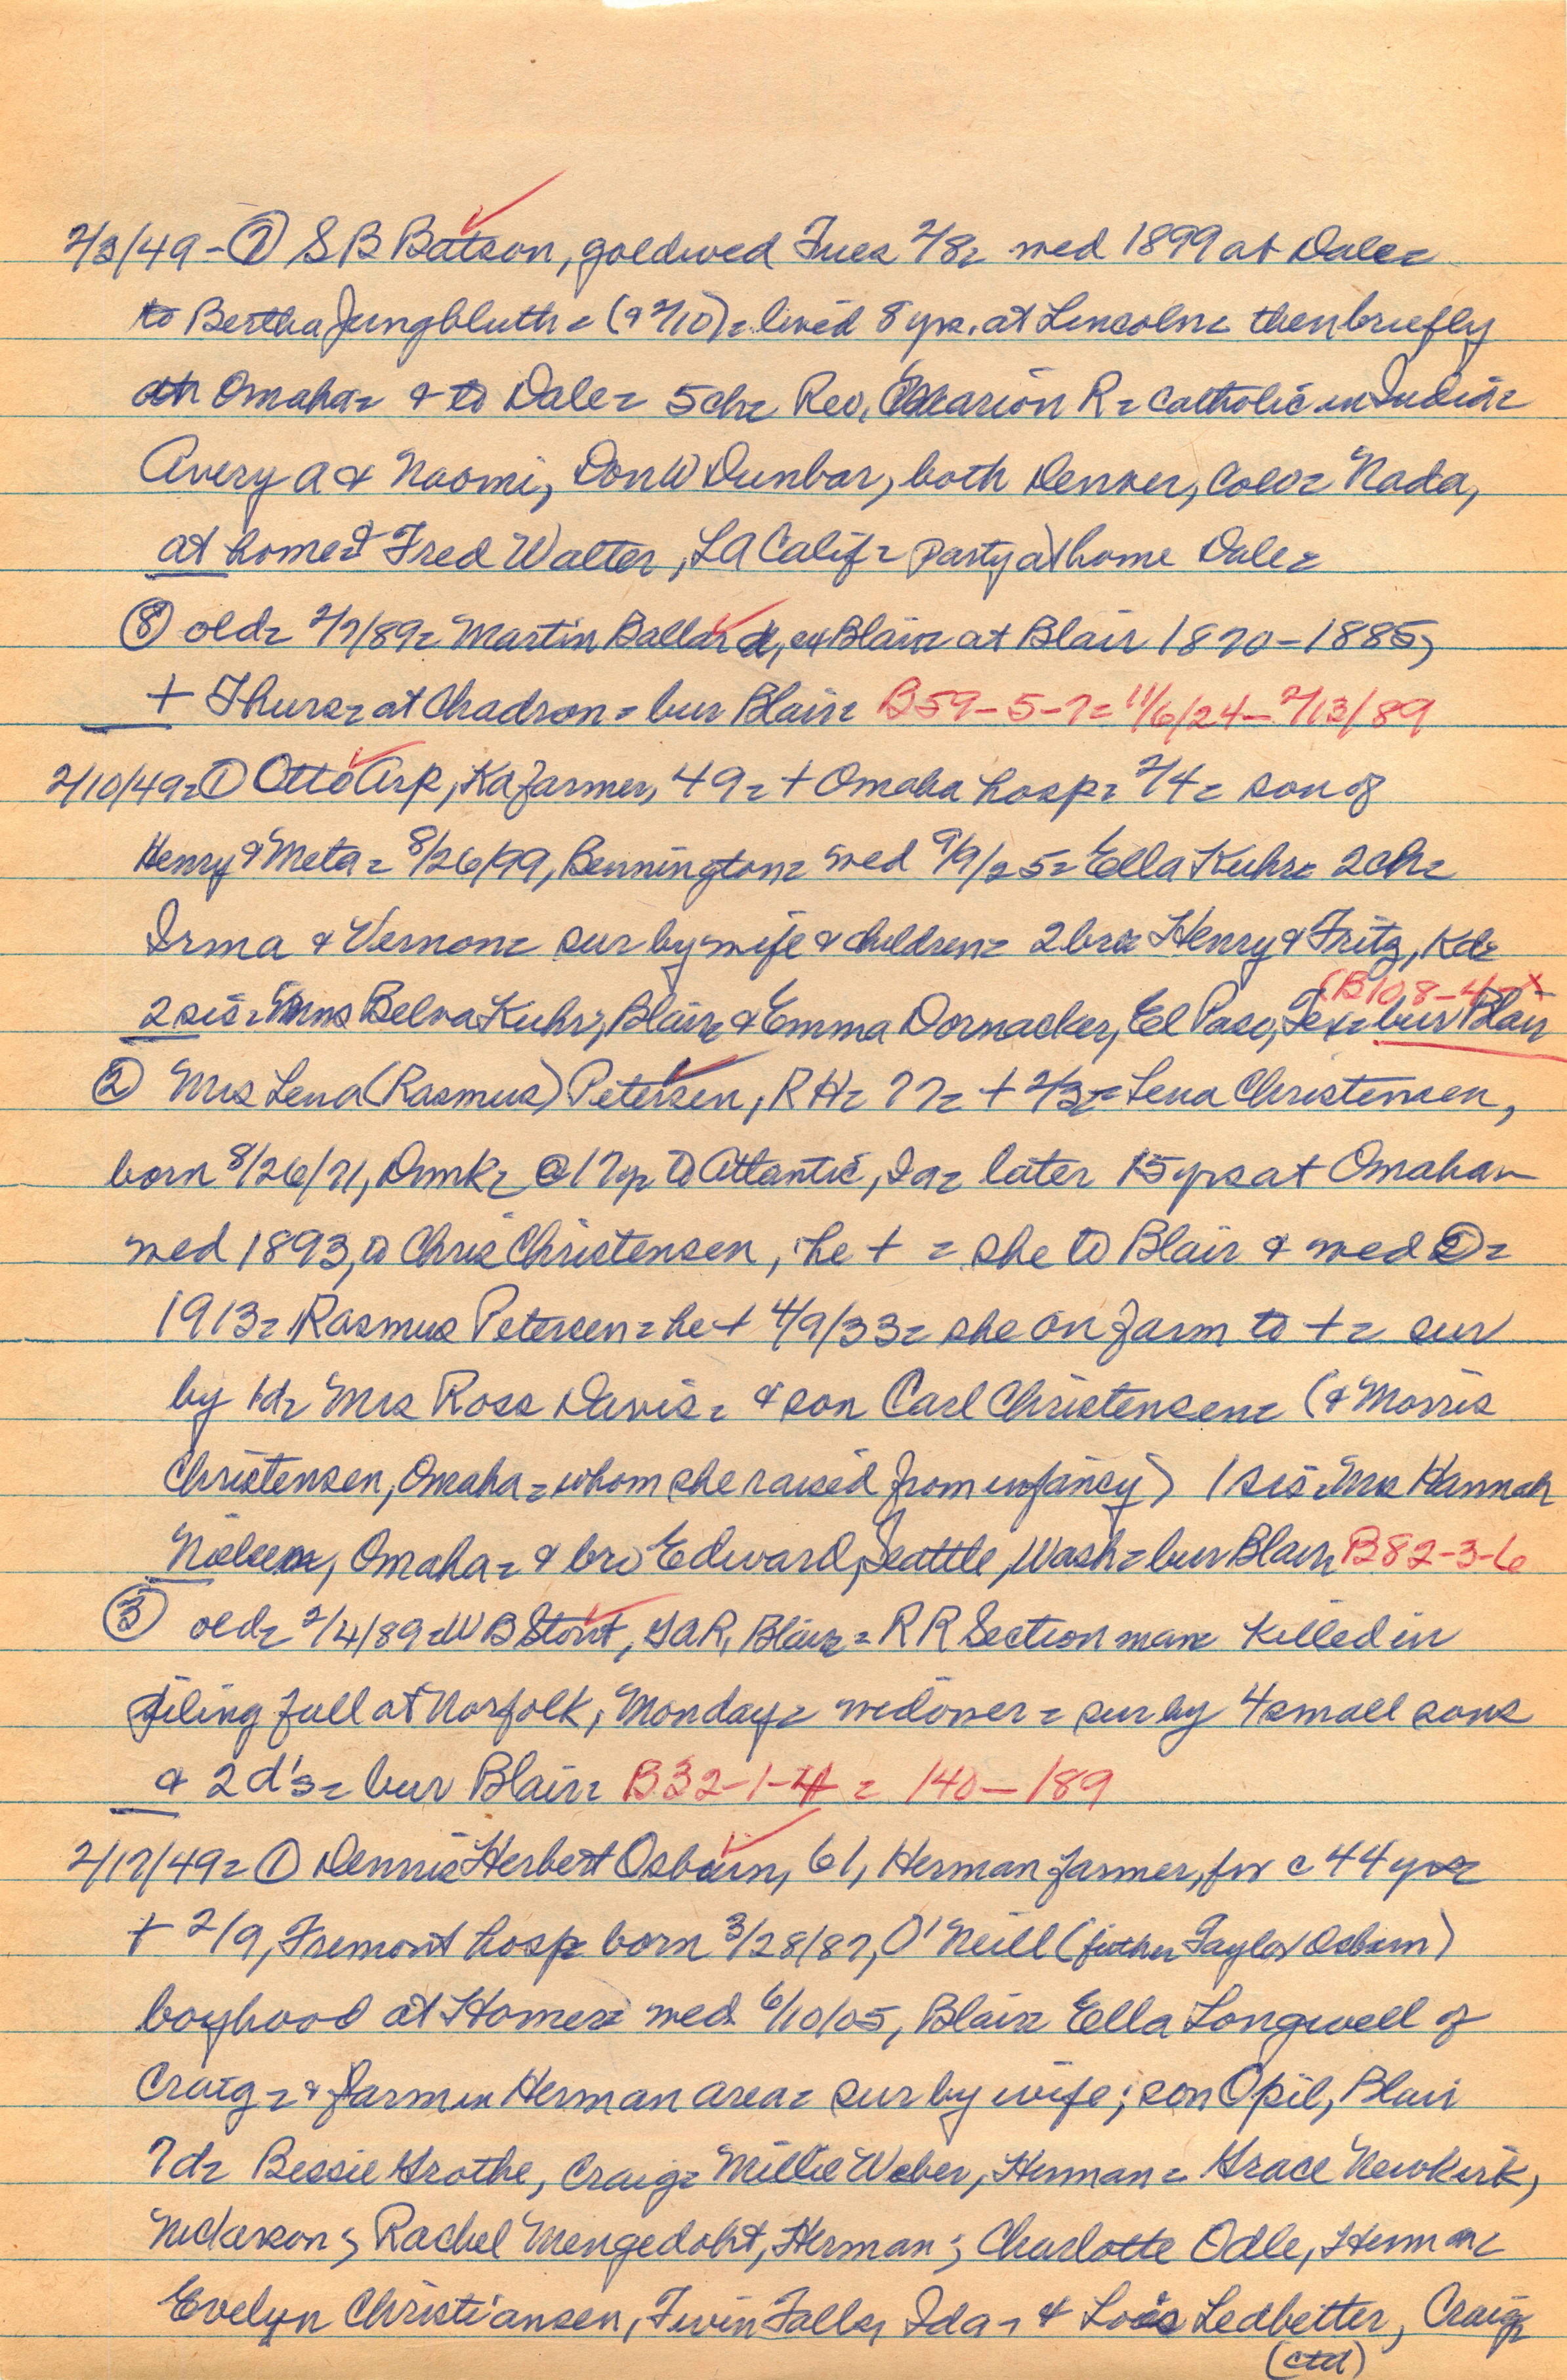 2/3/49 - ⑦ S B Batson, goldwed Tues 2/8= wed 1899 at Dale=
to Bertha Jungbluth = (& 2/10) = lived 8 yrs. at Lincoln= then briefly
at Omaha= & to Dale= 5ch= Rev. Marion R= Catholic in India=
Avery A & Naomi, Don W Dunbar, both Denver, Colo= Nada,
at home= & Fred Walter, LA Calif= party at home Dale=
⑧ old= 2/7/89= Martin Ballard, ex Blair= at Blair 1870-1885,
+ Thurs= at Chadron= bur Blair= B59-5-7= 11/6/24- 2/13/89
2/10/49= ① Otto Arp, Ka farmer, 49= + Omaha hosp= 2/4= son of
Henry & Meta= 8/26/99, Bennington= wed 9/9/25= Ella Kuhr= 2ch=
Irma & Vernon= sur by wife & children= 2 bro= Henry & Fritz, Kd=
(B108-4-x
2 sis= Mrs Belva Kuhr, Blair= & Emma Dornacker, El Paso, Tex= bur Blair
② Mrs Lena (Rasmus) Petersen, RH= 77= + 2/3= Lena Christensen,
born 8/26/71, Dnmk= @ 17 yr to Atlantic, Ia= later 15 yrs at Omaha=
wed 1893, to Chris Christensen, he + = she to Blair & wed ②=
1913= Rasmus Petersen= he + 4/9/33= she on farm to + = sur
by 1d= Mrs Ross Davis= & son Carl Christensen= (& Morris
Christensen, Omaha= whom she raised from infancy) 1 sis= Mrs Hannah
Nielsen, Omaha= & bro Edward, Seattle, Wash= bur Blair= B82-3-6
③ old= 2/4/89= W B Stout, GAR, Blair= RR Section man= killed in
piling fall at Norfolk, Monday= widower= sur by 4 small sons
& 2 d's= bur Blair= B32-1-4 = 140-189
2/17/49= ① Dennis Herbert Osburn, 61, Herman farmer, for c 44 yrs=
+ 2/9, Fremont hosp= born 3/28/87, O'Neill (father Taylor Osburn)
boyhood at Homer= wed 6/10/05, Blair= Ella Longwell of
Craig= & farm in Herman area= sur by wife; son Opil, Blair
7d= Bessie Grothe, Craig= Millie Weber, Herman= Grace Newkirk,
Nickerson; Rachel Mengedoht, Herman; Charlotte Odle, Herman=
Evelyn Christiansen, Twin Falls, Ida= & Lois Ledbetter, Craig=
(ctd)